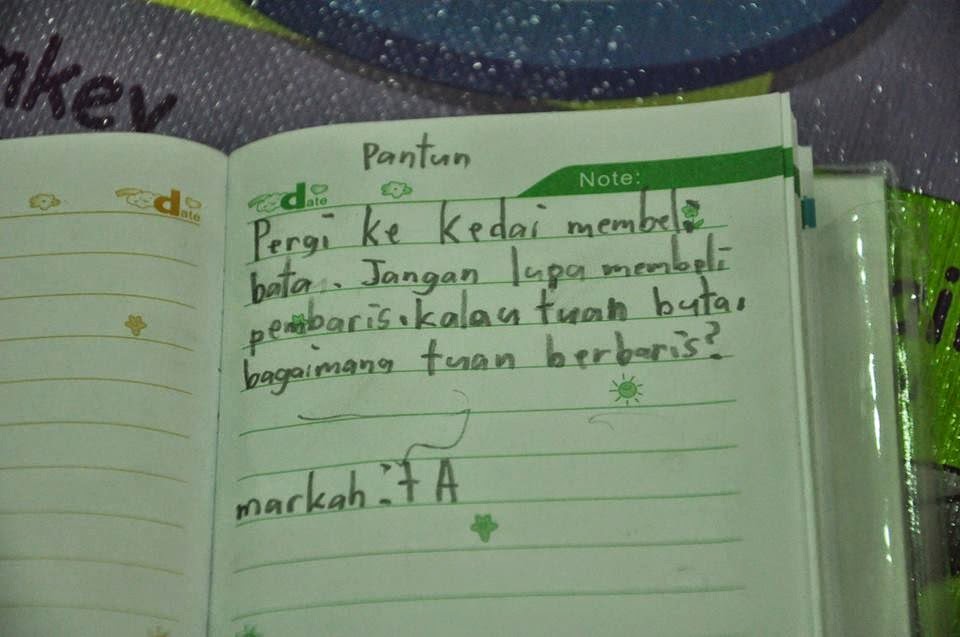 Pantun
Note:
date
date
Pergi ke kedai membeli
bata. Jangan lupa membeli
pembaris. kalau tuan buta,
bagaimana tuan berbaris?
markah: + A